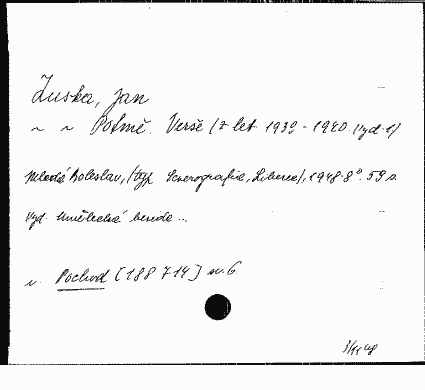 Zuska, Jan
~ ~ Potmě. Verše (z let 1939-1940. (vyd. 1)
Mladá Boleslav, (typ. Severografie, Liberec), 1948. 8°. 59 s.
Vyd. Umělecká beseda ...
v. Pochod [188 714] sv. 6.